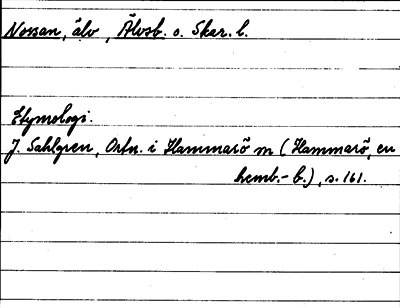 Nossan, älv, Älvsb. o. Skar. l.
Etymologi.
J. Sahlgren, Ortn. i Hammarö m (Hammarö, en
hemb.- b.), s. 161.